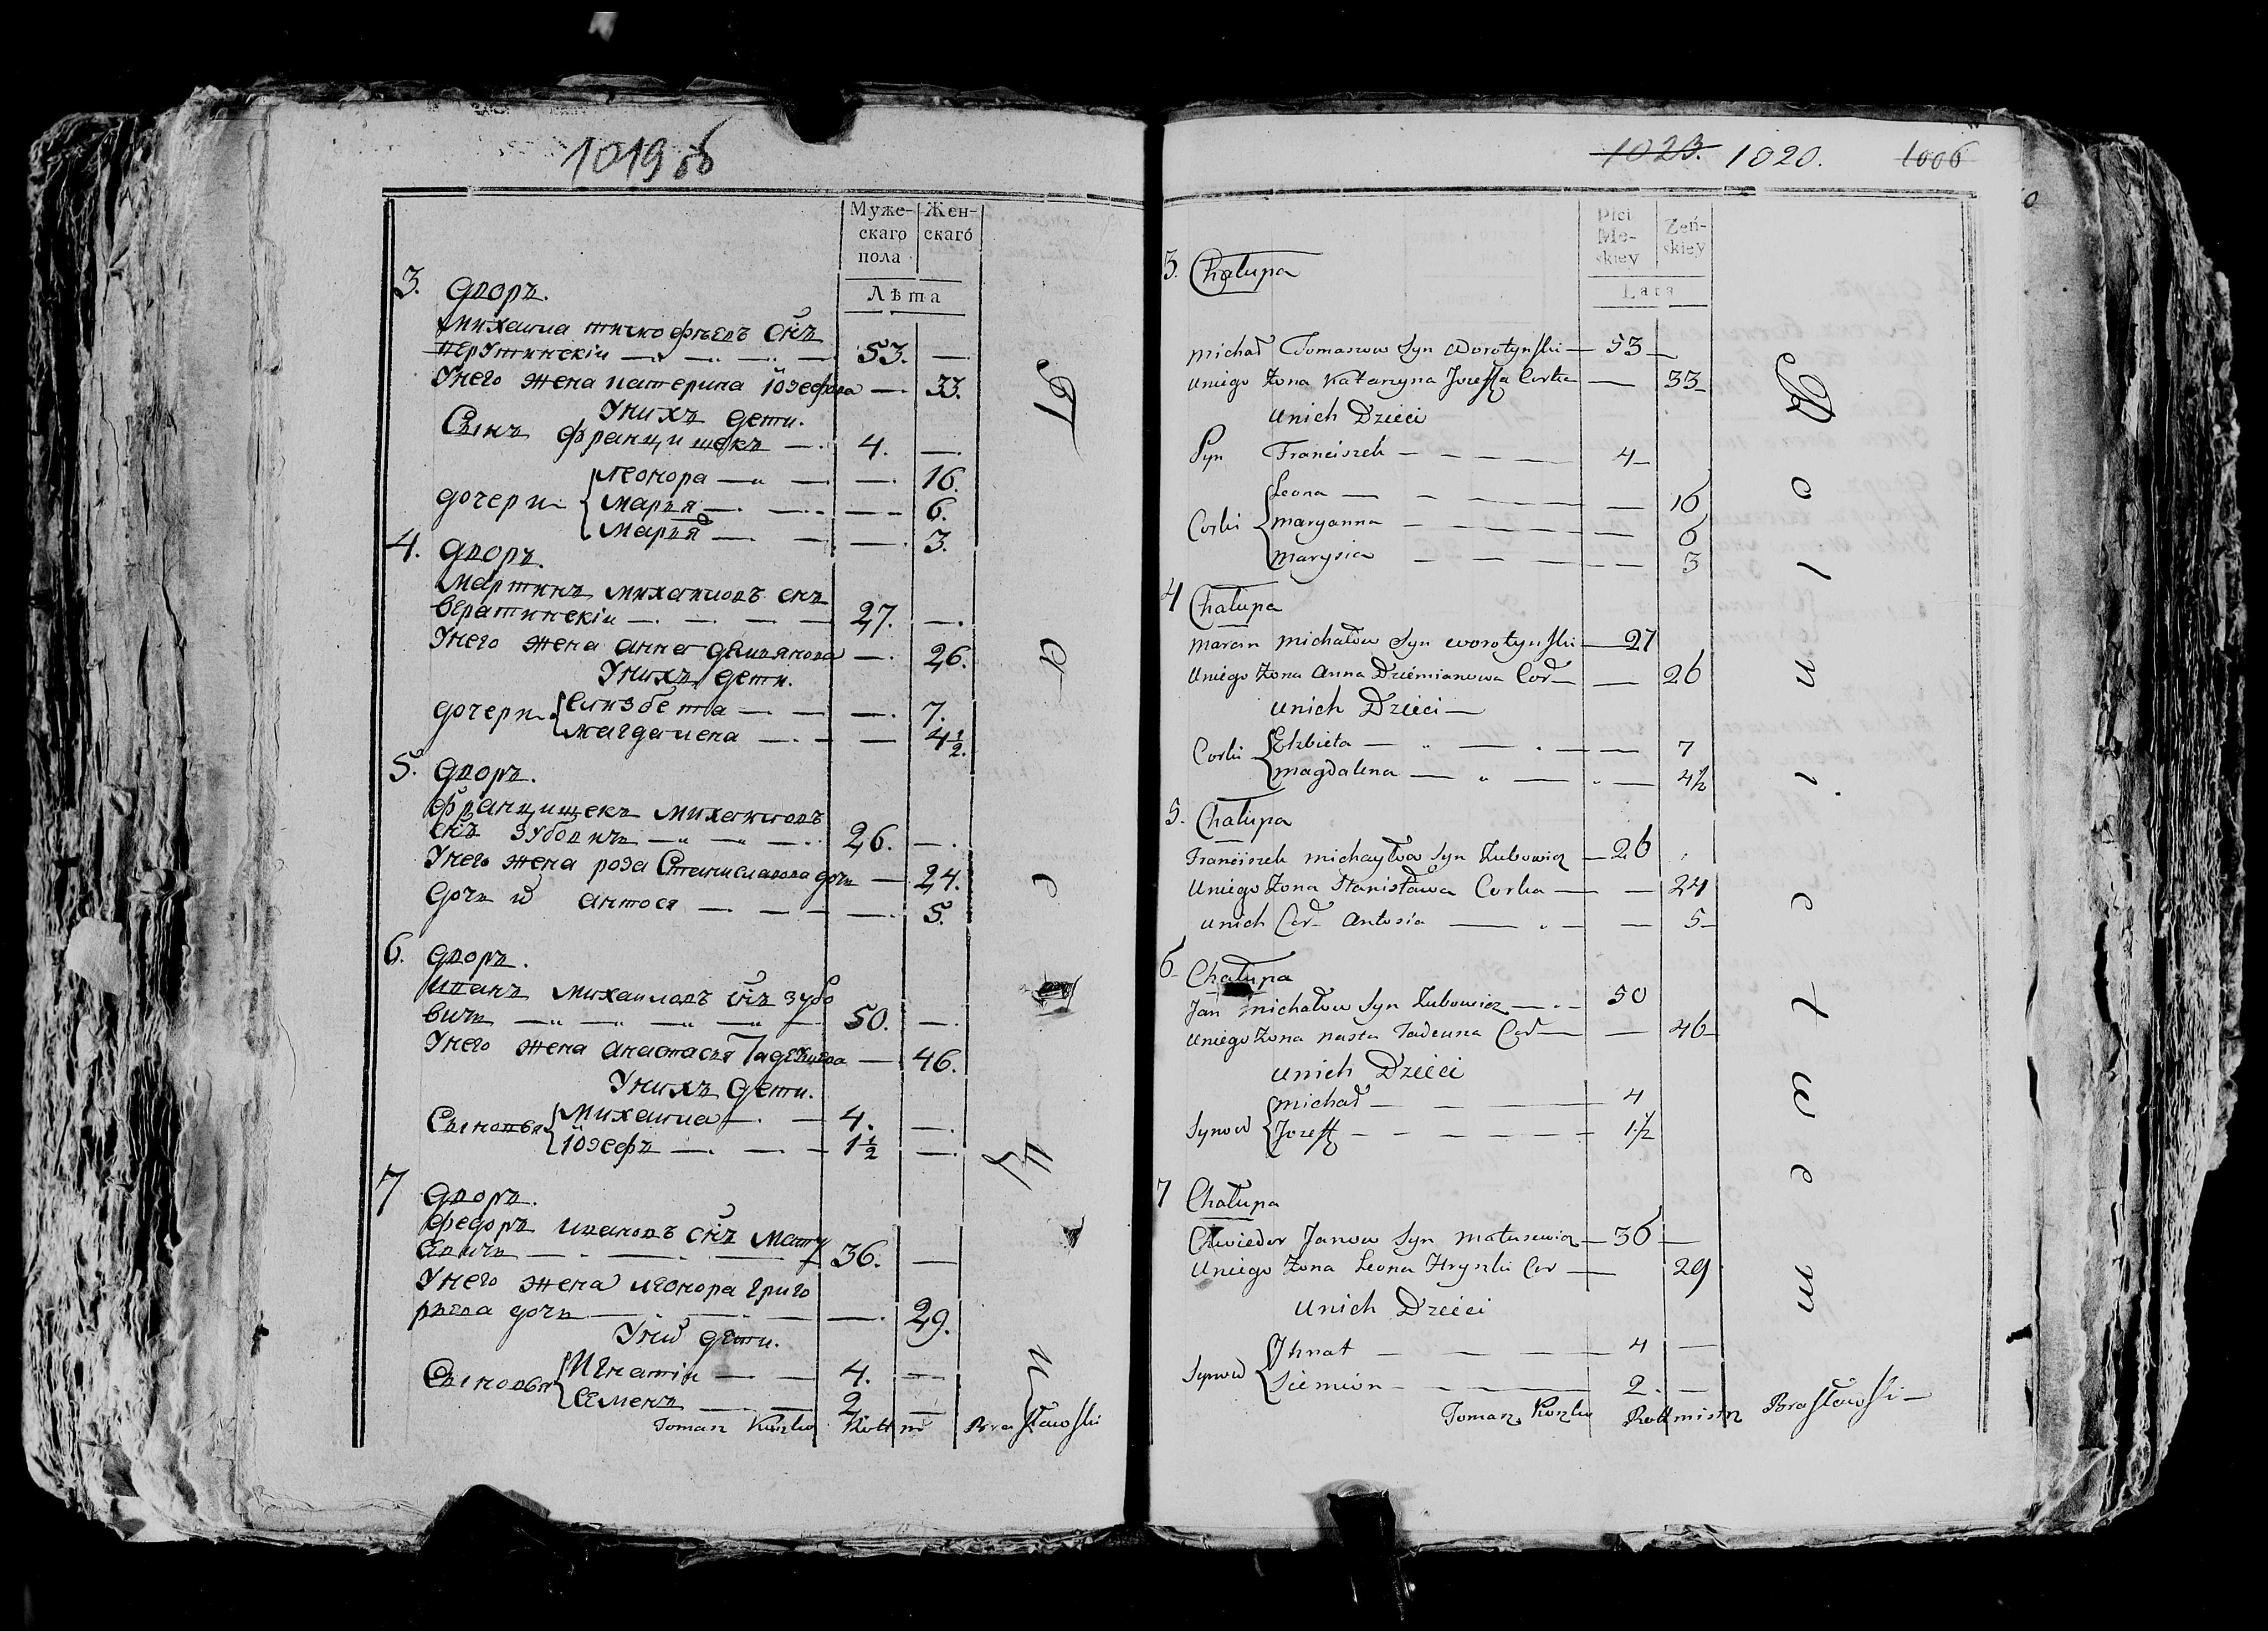 1019 об
Муже-
скаго
пола
Жен-
скаго
Лѣта
3. дворъ.
Михаила тимофѣевъ снъ
53. —
Унего жена катерина Iозефова — 33.
Унихъ дети.
Сынъ францишекъ — 4. —
дочери
леонора — — 16.
Марья — — 6.
Марья — — 3.
4. дворъ.
Мартинъ михаиловъ снъ
вератинскiи — 27. —
Унего жена анна демьянова — 26.
Унихъ дети.
дочери
елизбета — — 7.
магдалена — — 4½.
5. дворъ.
Францищекъ михаиловъ
снъ зубовичъ — 26. —
Унего жена роза Станиславова дочь — 24.
дочь антося — — 5.
6. дворъ.
Иванъ михаиловъ снъ зубо
вичъ — 50. —
Унего жена анастасья Тадеушова — 46.
Унихъ дети.
Сыновья
Михаила — 4. —
Iозефъ — 1½ —
7 дворъ.
федоръ ивановъ снъ мату
евичъ — 36. —
Унего жена леонора григо
рьева дочь — — 29.
дети.
Сыновья
Игнатiи — 4. —
Семенъ — 2. —
Tomasz Kozlo Rottm Brasławski
1023. 1020. 1006
Płci
Mę-
skiey
Żeń-
skiey
Lata
3. Chałupa
Michał Tomaszow Syn Worotynski — 53 —
Uniego Żona Katarzyna Jozeffa Corka — 33 —
Unich Dzieci
Syn Franciszek — 4 —
Corki
Leona — — 16
Maryanna — — 6
Marysia — — 3
4 Chałupa
Marcin Michałow Syn Worotynski — 27
Uniego Żona Anna Dziemianowa Cor — — 26
Unich Dzieci —
Corki
Elzbieta — — 7
Magdalena — — 4½
5. Chałupa
Franciszek Michayłow Syn Zubowicz — 26
Uniego Żona Stanisława Corka — — 24
Unich Cor Antosia — — 5 —
6 Chałupa
Jan Michałow Syn Zubowicz — 50
Uniego Żona Nasta Tadeusza Cor — — 46
Unich Dzieci
Synow
Michał — 4
Jozeff — 1½
7 Chałupa
Chwiedor Janow Syn Matusewicz — 36 —
Uniego Żona Leona Hryszki Cor — 29
Unich Dzieci
Synow
Ihnat — 4 —
Siemion — 2. —
Tomasz Kozlo Rottmistrz Brasławski —